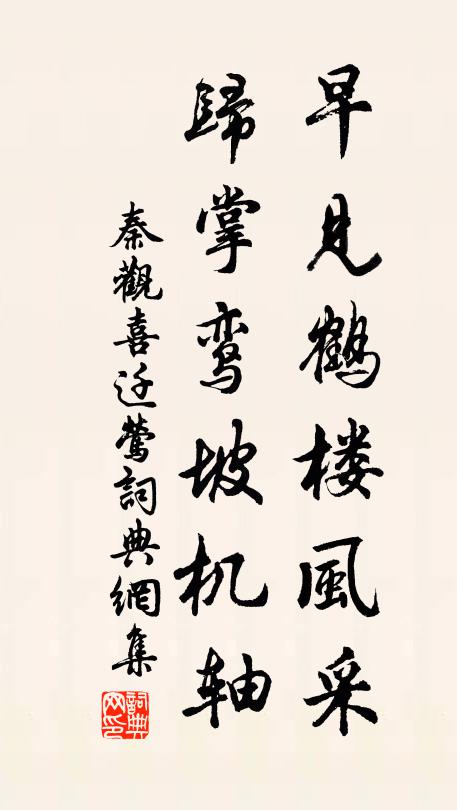 早见鹤楼風采
歸掌鸾坡机轴
秦觀喜迁鶯詞典網集
詞典
网印